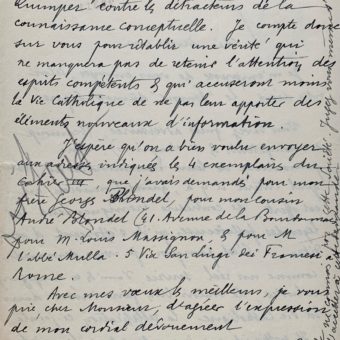 Quimper contre les détracteurs de la
connaissance conceptuelle. Je compte donc
sur vous pour rétablir une vérité qui
ne manquera pas de retenir l'attention des
esprits compétents & qui accuseront moins
la Vie Catholique de ne pas leur apporter des
éléments nouveaux d'information
J'espère qu'on a bien voulu envoyer
aux adresses indiquées les 4 exemplaires du
Cahier que j'avais demandés pour mon
frère Georges Blondel, pour mon cousin
André Blondel (41 Avenue de la Bourdonnais
pour M. Louis Massignon, & pour M.
l'abbé Mulla. 5 Via San Luigi dei Francesi
Rome
Avec mes vœux les meilleurs, je vous
prie cher Monsieur, d'agréer l'expression
de mon cordial dévouement